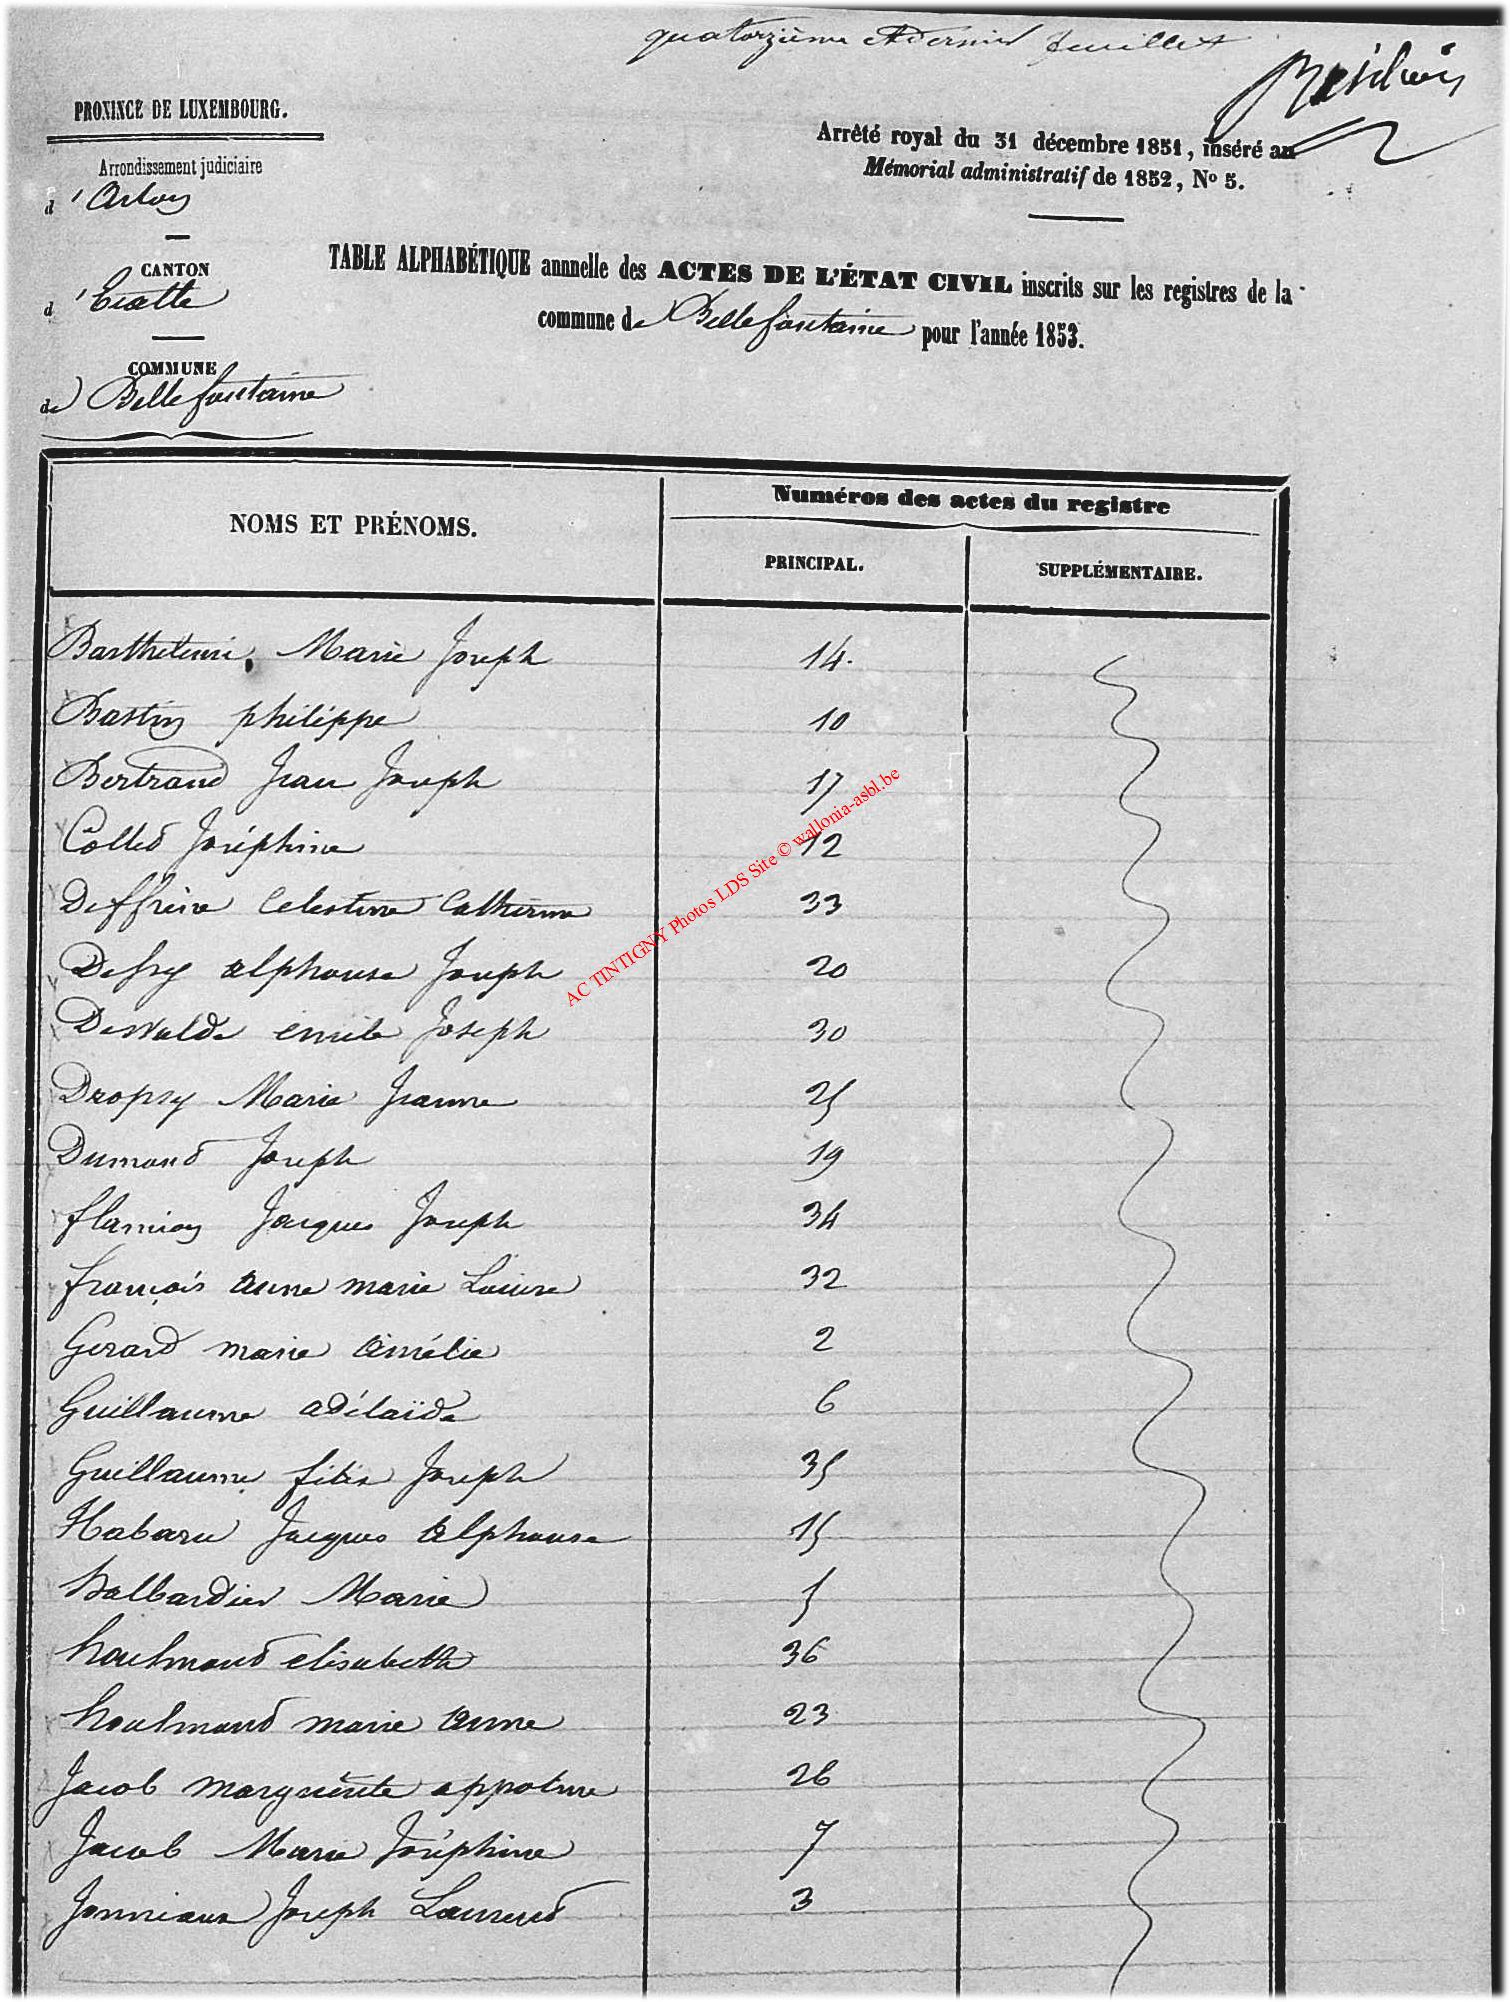 quatorzième et dernier feuillet
PROVINCE DE LUXEMBOURG.
Arrêté royal du 31 décembre 1851, inséré au
Mémorial administratif de 1852, No 5.
Arrondissement judiciaire
d'Arlon
CANTON
d'Etalle
COMMUNE
de Bellefontaine
TABLE ALPHABÉTIQUE annuelle des ACTES DE L'ÉTAT CIVIL inscrits sur les registres de la
commune de Bellefontaine pour l'année 1853.
NOMS ET PRÉNOMS.
Numéros des actes du registre
PRINCIPAL.
SUPPLÉMENTAIRE.
Barthelemi, Marie Joseph 14.
Bastin philippe 10
Bertrand Jean Joseph 17
Collet Joséphine 12
Deffrère Celestine Catherine 33
Defry alphonse Joseph 20
Deswalde émile Joseph 30
Dropsy Marie Jeanne 25
Dumond Joseph 19
flamion Jacques Joseph 34
françois anne marie Louise 32
Gerard marie Amélie 2
Guillaume adélaïde 6
Guillaume félix Joseph 35
Habaru Jacques Alphonse 15
halbardier Marie 5
houlmond elisabeth 36
houlmond marie anne 23
Jacob marguerite appoline 26
Jacob Marie Joséphine 7
Jonniaux Joseph Laurend 3
AC TINTIGNY Photos LDS Site © wallonia-asbl.be